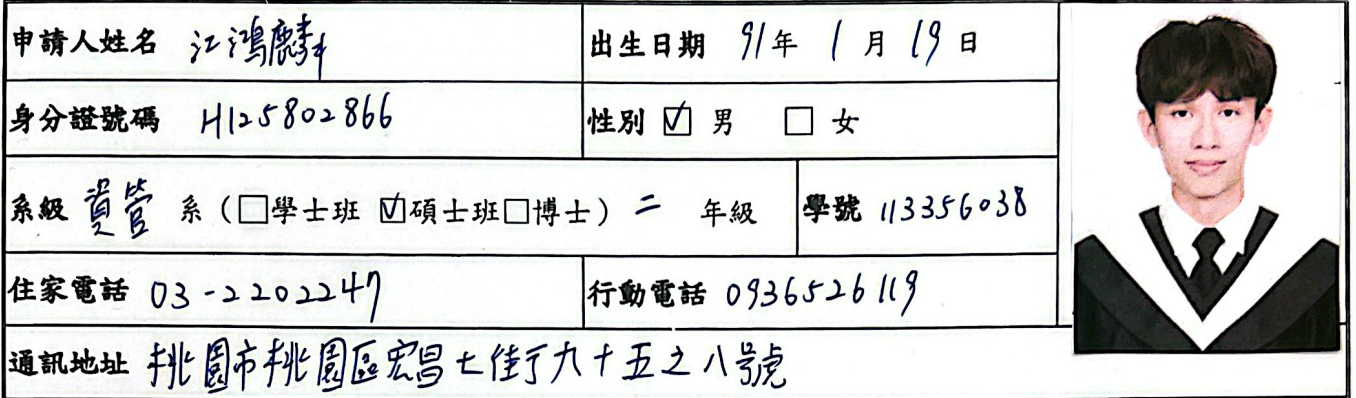 申請人姓名 江鴻麟 出生日期 91年 1 月 19 日
身分證號碼 H125802866 性別 ☑ 男 □ 女
系級 資管 系（□學士班 ☑碩士班□博士）二 年級 學號 113356038
住家電話 03-2202247 行動電話 0936526119
通訊地址 桃園市桃園區宏昌七街九十五之八號